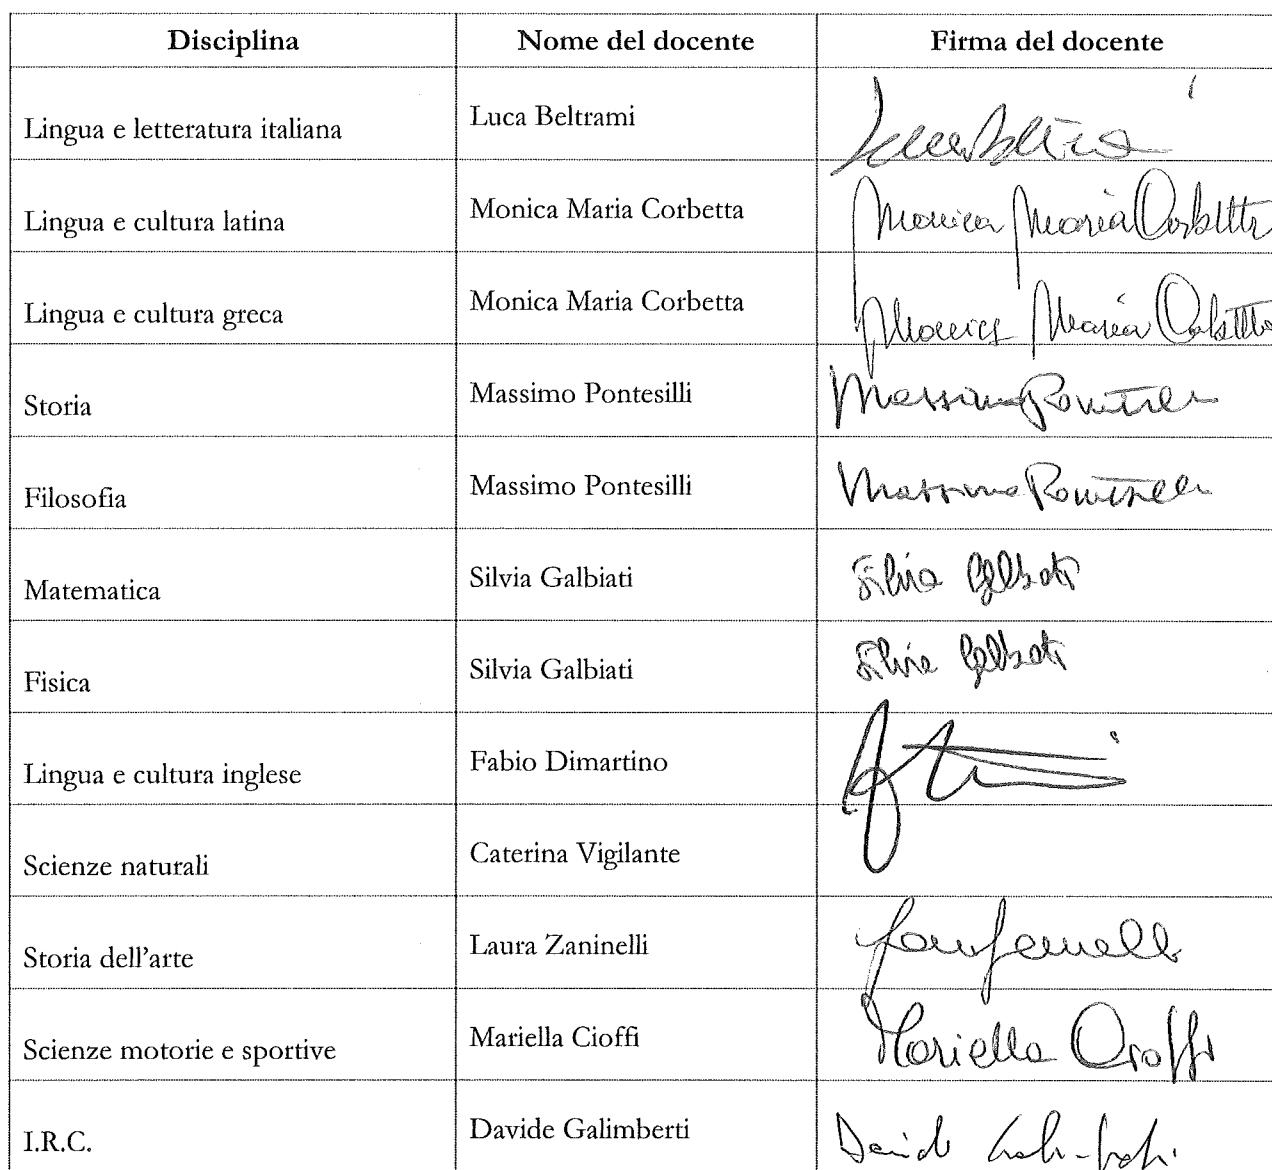 Disciplina Nome del docente Firma del docente
Lingua e letteratura italiana Luca Beltrami
Lingua e cultura latina Monica Maria Corbetta Monica Maria Corbetta
Lingua e cultura greca Monica Maria Corbetta Monica Maria Corbetta
Storia Massimo Pontesilli Massimo Pontesilli
Filosofia Massimo Pontesilli Massimo Pontesilli
Matematica Silvia Galbiati Silvia Galbiati
Fisica Silvia Galbiati Silvia Galbiati
Lingua e cultura inglese Fabio Dimartino
Scienze naturali Caterina Vigilante
Storia dell'arte Laura Zaninelli
Scienze motorie e sportive Mariella Cioffi Mariella Cioffi
I.R.C. Davide Galimberti Davide